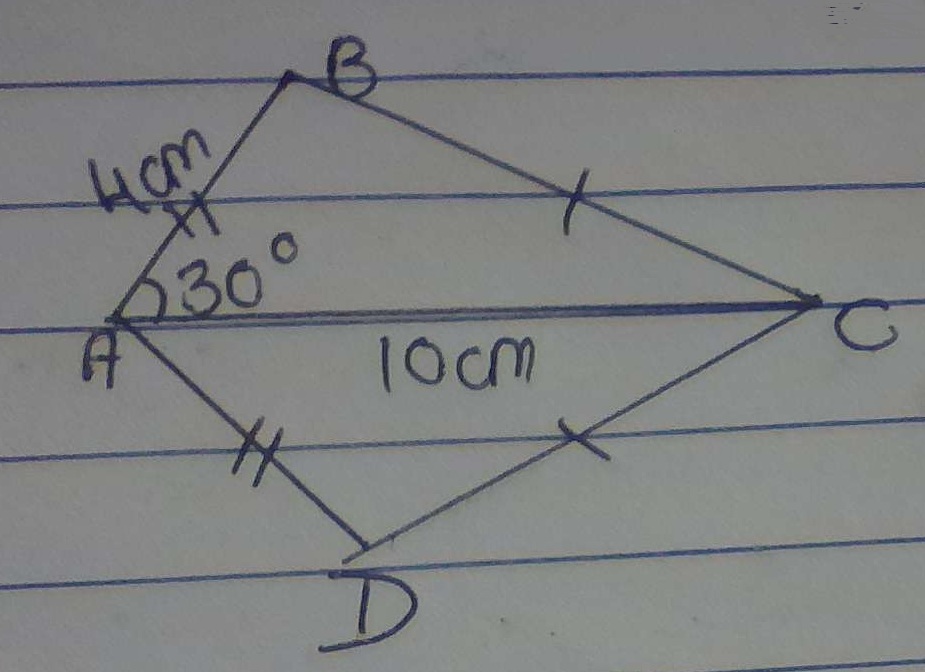 B
4cm
30°
A
C
10cm
D